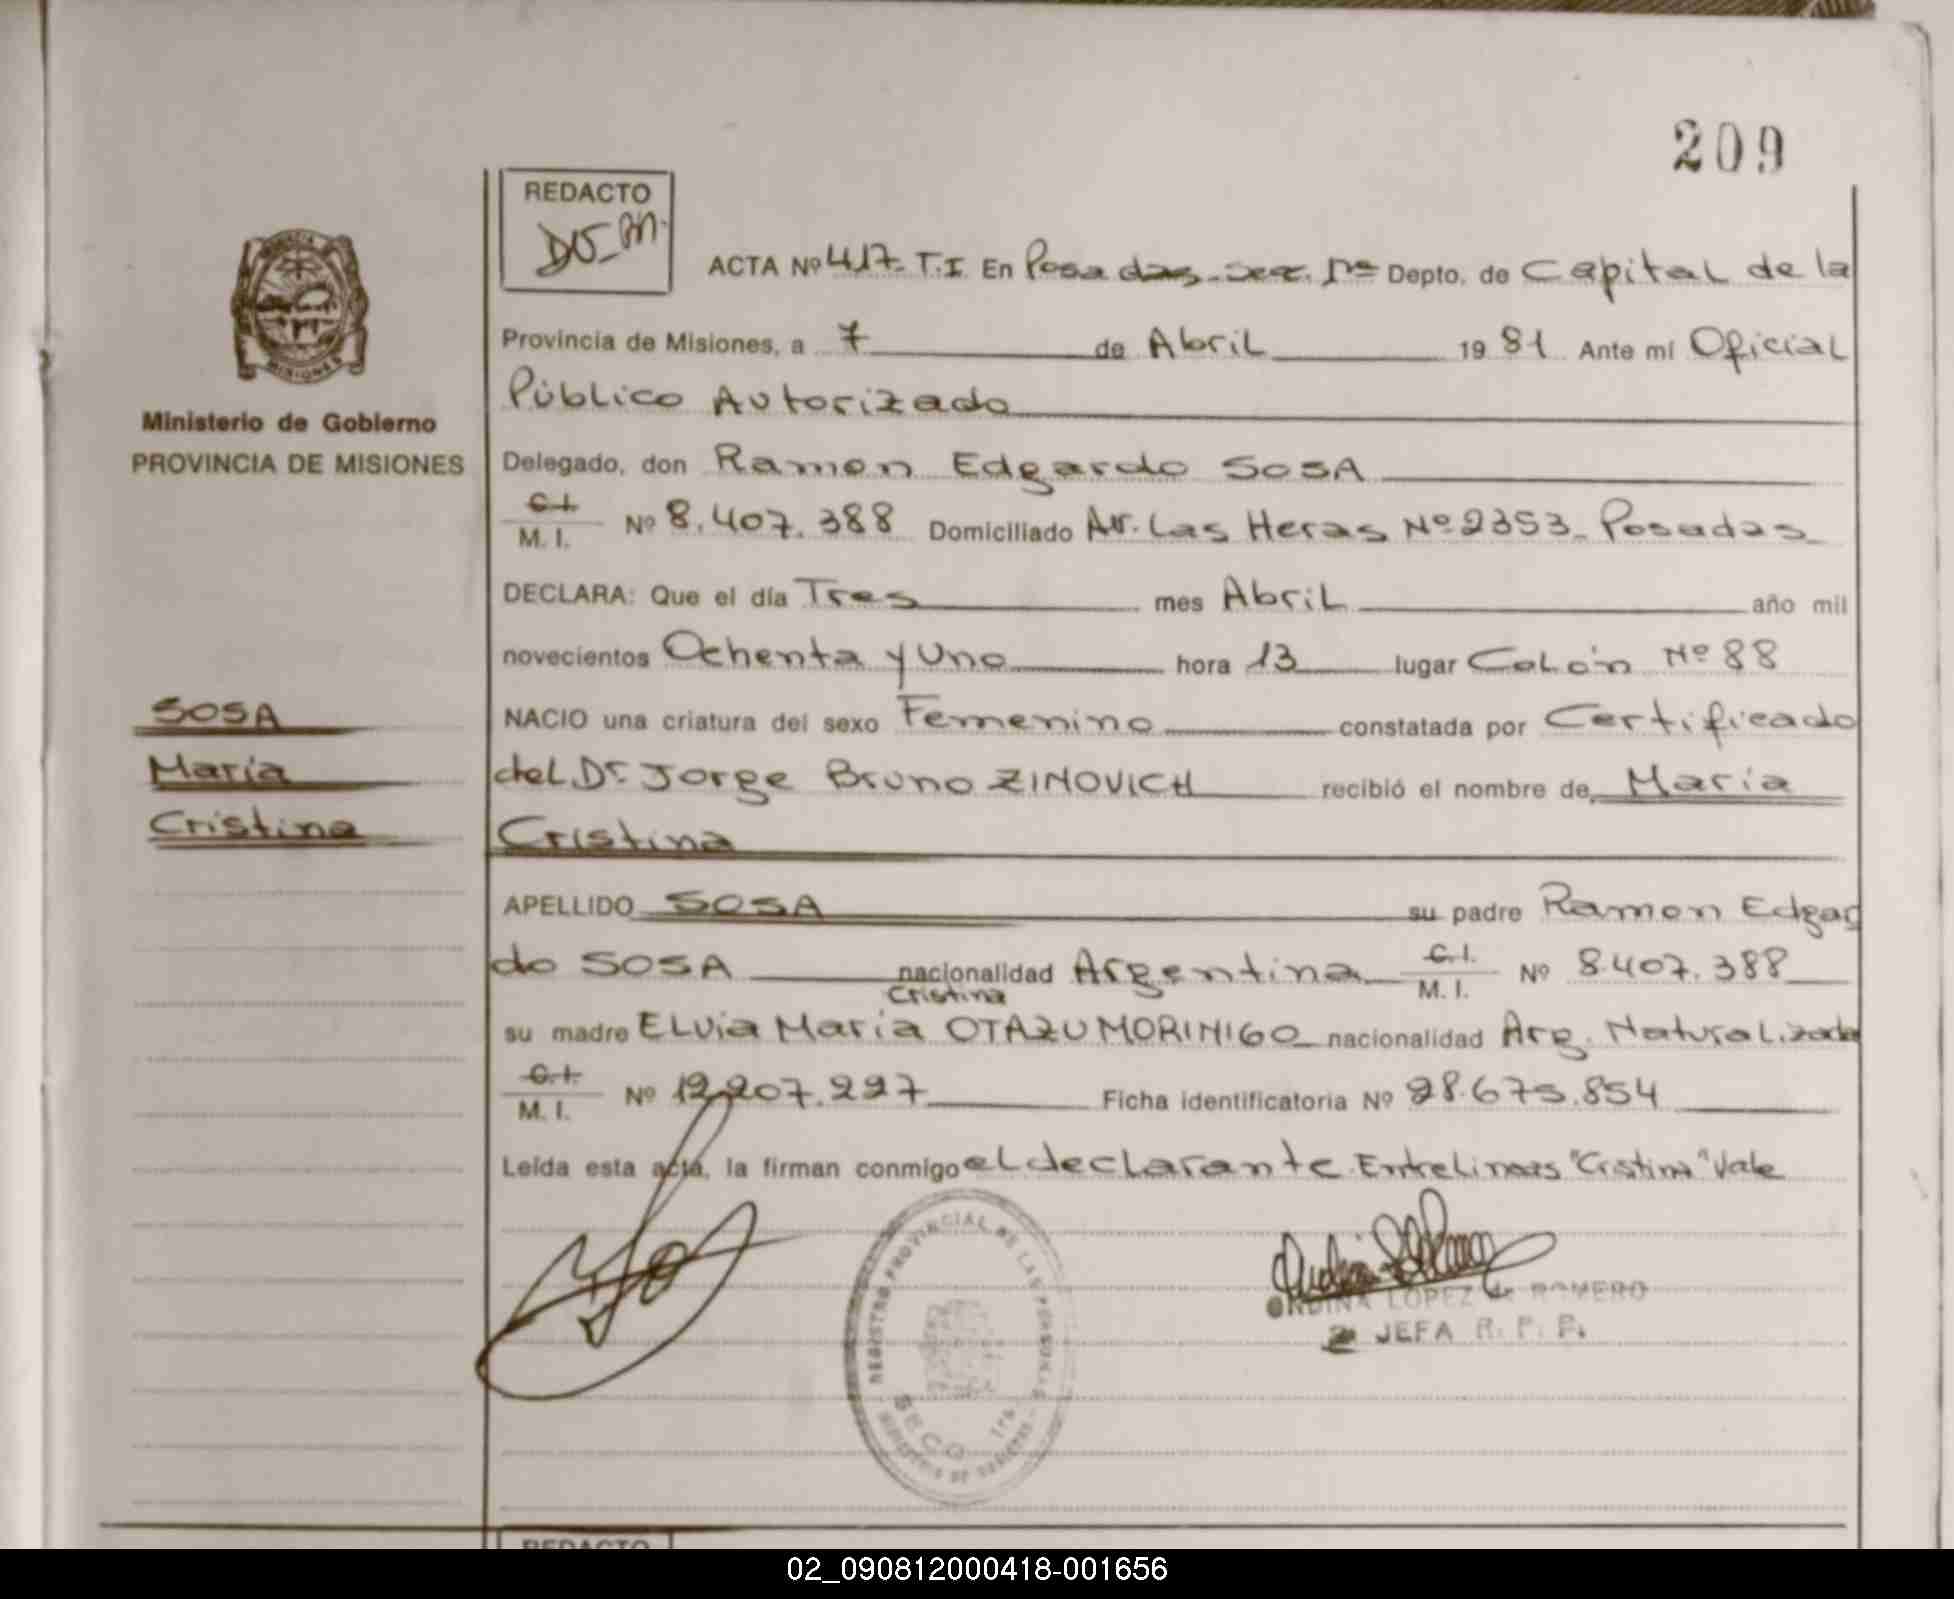 209
REDACTO
ACTA Nº 417. T.I. En Posadas. Sec. 1ra Depto. de Capital de la
Provincia de Misiones, a 7 de Abril 1981 Ante mí Oficial
Público Autorizado
Delegado, don Ramon Edgardo SOSA
C.I.
M. I. Nº 8.407.388 Domiciliado Av. Las Heras Nº 2353_ Posadas
DECLARA: Que el día Tres mes Abril año mil
novecientos Ochenta y Uno hora 13 lugar Colón Nº 88
NACIO una criatura del sexo Femenino constatada por Certificado
del Dr. Jorge Bruno ZINOVICH recibió el nombre de María
Cristina
APELLIDO SOSA su padre Ramon Edgar
do SOSA nacionalidad Argentina C.I. M. I. Nº 8.407.388
Cristina
su madre ELvia María OTAZU MORINIGO nacionalidad Arg. Naturalizada
C.I.
M. I. Nº 12.207.227 Ficha identificatoria Nº 28.675.854
Leída esta acta, la firman conmigo el declarante. Entrelineas "Cristina" Vale
Ministerio de Gobierno
PROVINCIA DE MISIONES
SOSA
María
Cristina
MISIONES
REGISTRO PROVINCIAL DE LAS PERSONAS
SECC. 1ra.
MINISTERIO DE GOBIERNO
ONDINA LOPEZ de ROMERO
JEFA R. P. P.
REDACTO
02_090812000418-001656